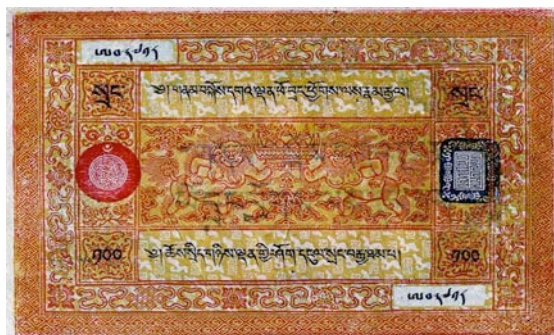 སྲང ༄། །གནམ་བསྐོས་དགའ་ལྡན་ཕོ་བྲང་ཕྱོགས་ལས་རྣམ་རྒྱལ། སྲང
༡༠༠ ༄། །ཆོས་སྲིད་གཉིས་ལྡན་གྱི་ཤོག་དངུལ་སྲང་བརྒྱ་ཐམ་པ། ༡༠༠